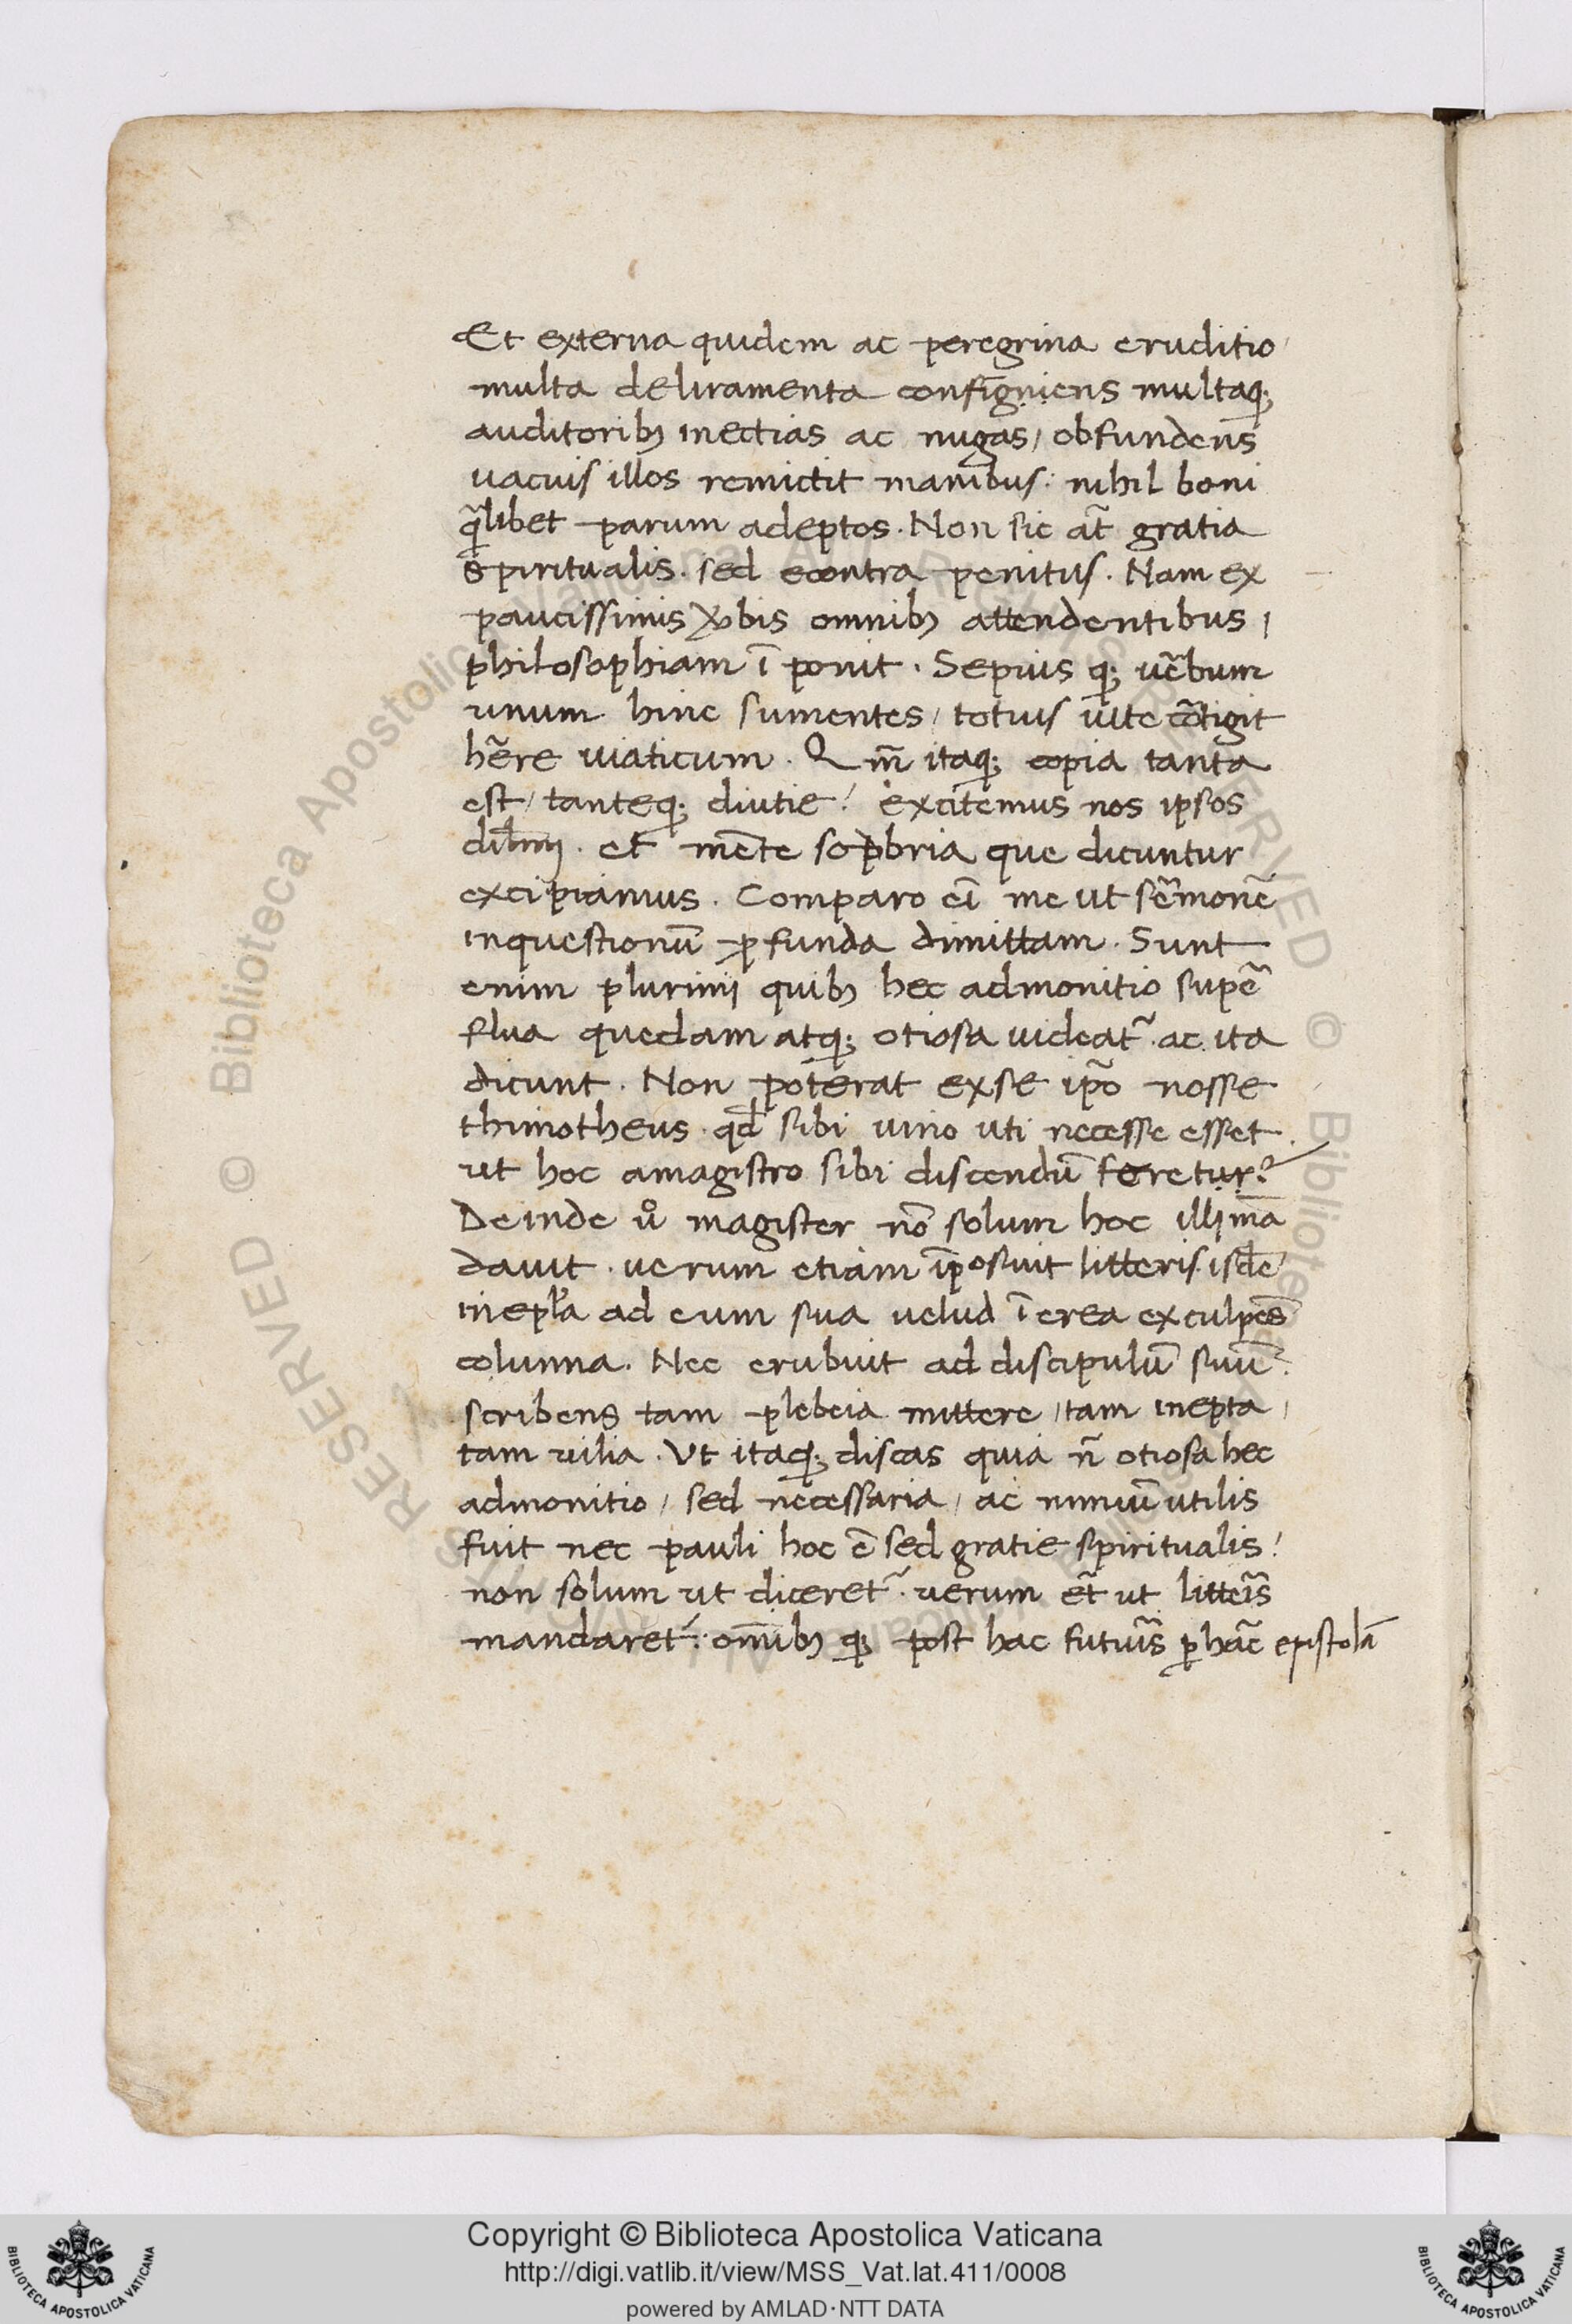 Et externa quidem ac peregrina eruditio
multa deliramenta configniens multaq;
auditorib; inectias ac nugas / obfundens
uacuis illos remictit manibus: nihil boni
q̃libet parum adeptos. Non sic at̃ gratia
spiritualis. sed econtra penitus. Nam ex
paucissimis ỽbis omnib; attendentibus /
philosophiam ī ponit. Sepius q; uẽbum
unum hinc sumentes / totius uite cõtigit
hẽre uiaticum. Qm̃ itaq; copia tanta
est / tanteq; diutie! excitemus nos ipsos
et mẽte sobria que dicuntur
excipiamus. Comparo eĩ me ut sẽmonẽ
inquestionũ ꝓfunda dimittam. Sunt
enim plurimi quib; hec admonitio supẽ
flua quedam atq; otiosa uideat̃. ac ita
dicunt. Non poterat exse ip̃o nosse
thimotheus. qđ sibi uino uti necesse esset.
ut hoc amagistro sibi discendũ feretur?
Deinde uº magister nõ solum hoc illi mã
dauit. uerum etiam ip̃osuit litteris. isdẽ
inepl̃a ad eum sua uelud ī erea exculpẽs
colunna. Nec erubuit ad discipulũ suũ
scribens tam plebeia mittere / tam inepta /
tam uilia. Ut itaq; discas quia ñ otiosa hec
admonitio / sed necessaria / ac nimiũ utilis
fuit nec pauli hoc ẽ sed gratie spiritualis!
non solum ut diceret̃. uerum et̃ ut litteĩs
mandaret̃: om̃ib; q; post hac futuĩs ꝑ hãc epistolã
Copyright © Biblioteca Apostolica Vaticana
http://digi.vatlib.it/view/MSS_Vat.lat.411/0008
powered by AMLAD·NTT DATA
BIBLIOTECA APOSTOLICA VATICANA
BIBLIOTECA APOSTOLICA VATICANA